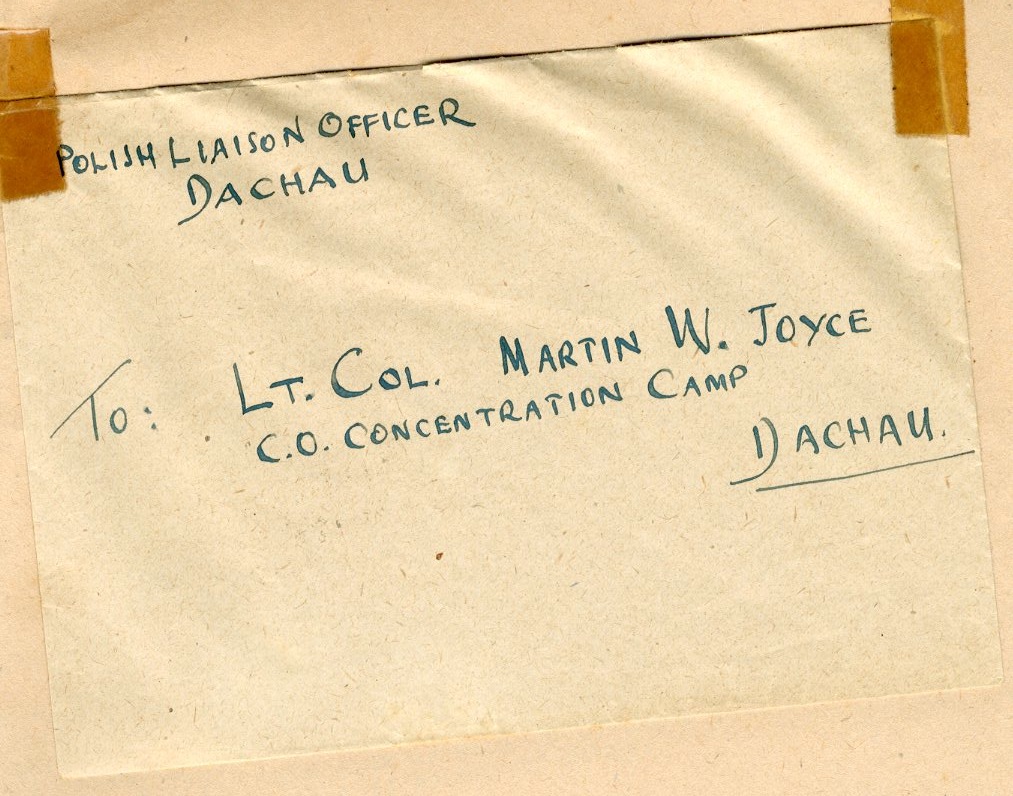 POLISH LIAISON OFFICER
DACHAU
To: LT. COL. MARTIN W. JOYCE
C.O. CONCENTRATION CAMP
DACHAU.